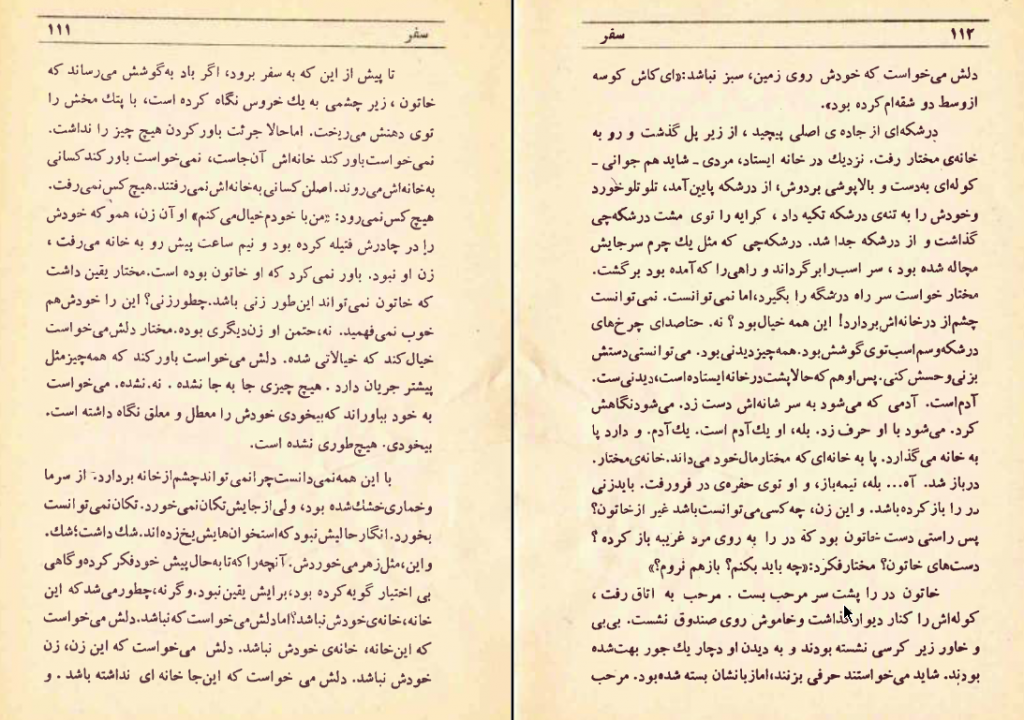 سفر ۱۱۱
تا پیش از این که به سفر برود، اگر باد به‌گوشش می‌رساند که
خاتون ، زیر چشمی به یك خروس نگاه کرده است، با پتك مخش را
توی دهنش می‌ریخت. اماحالا جرئت باورکردن هیچ چیز را نداشت.
نمی‌خواست‌باورکند خانه‌اش آن‌جاست، نمی‌خواست باورکندکسانی
به‌خانه‌اش‌می‌روند. اصلن‌کسانی‌به‌خانه‌اش‌نمی‌رفتند.هیچ‌کس‌نمی‌رفت.
هیچ‌کس‌نمی‌رود: «من‌با خودم‌خیال‌می‌کنم» او آن زن، همو که خودش
را در چادرش فتیله کرده بود و نیم ساعت پیش رو به خانه می‌رفت ،
زن او نبود. باور نمی‌کرد که او خاتون بوده است.مختار یقین داشت
که خاتون نمی‌تواند این‌طور زنی باشد.چطورزنی؟ این را خودش‌هم
خوب نمی‌فهمید. نه،حتمن او زن‌دیگری بوده.مختار دلش‌می‌خواست
خیال‌کند که خیالاتی شده. دلش می‌خواست باورکند که همه‌چیزمثل
پیشتر جریان دارد . هیچ چیزی جا به جا نشده . نه.نشده. می‌خواست
به خود بباوراند که‌بیخودی خودش را معطل و معلق نگاه داشته است.
بیخودی. هیچ‌طوری نشده است.
با این همه‌نمی‌دانست‌چرانمی‌تواندچشم‌ازخانه بردارد. از سرما
وخماری‌خشك‌شده بود، ولی‌ازجایش‌تکان‌نمی‌خورد. تکان‌نمی‌توانست
بخورد.انگار حالیش‌نبود که‌استخوان‌هایش‌یخ‌زده‌اند.شك داشت؛شك.
واین،مثل‌زهرمی‌خوردش.آنچه‌راکه‌تابه‌حال‌پیش خودفکرکرده‌وگاهی
بی اختیار گویه‌کرده بود،برایش یقین‌نبود.وگرنه،چطورمی‌شدکه این
خانه،خانه‌ی‌خودش‌نباشد؟امادلش‌می‌خواست‌که‌نباشد.دلش می‌خواست
که این‌خانه، خانه‌ی خودش نباشد. دلش می‌خواست که این زن، زن
خودش نباشد. دلش می خواست که این‌جا خانه ای نداشته باشد . و
۱۱۲ سفر
دلش می‌خواست که خودش روی زمین، سبز نباشد:«ای‌کاش کوسه
ازوسط دو شقه‌ام‌کرده بود».
درشکه‌ای از جاده ی اصلی پیچید ، از زیر پل گذشت و رو به
خانه‌ی مختار رفت. نزدیك در خانه ایستاد، مردی ـ شاید هم جوانی ـ
کوله‌ای به‌دست و بالاپوشی بردوش، از درشکه پایین‌آمد، تلو تلو خورد
وخودش را به تنه‌ی درشکه تکیه داد ، کرایه را توی مشت درشکه‌چی
گذاشت و از درشکه جدا شد. درشکه‌چی که مثل یك چرم سرجایش
مچاله شده بود ، سر اسب‌رابرگرداند و راهی‌را که‌آمده بود برگشت.
مختار خواست سر راه درشگه را بگیرد،اما نمی‌توانست. نمی‌توانست
چشم‌از درخانه‌اش‌بردارد! این همه خیال‌بود ؟ نه. حتاصدای چرخ‌های
درشکه‌وسم‌اسب‌توی‌گوشش‌بود.همه‌چیزدیدنی‌بود. می‌توانستی‌دستش
بزنی‌وحسش‌کنی.پس‌اوهم‌که‌حالاپشت‌درخانه‌ایستاده‌است،دیدنی‌ست.
آدم‌است. آدمی که می‌شود به سر شانه‌اش دست زد. می‌شودنگاهش
کرد. می‌شود با او حرف زد. بله، او یك‌آدم است. یك‌آدم. و دارد پا
به خانه می‌گذارد. پا به خانه‌ای‌که مختارمال‌خود می‌داند.خانه‌ی‌مختار.
درباز شد. آه... بله، نیمه‌باز، و او توی حفره‌ی در فرورفت. بایدزنی
در را باز کرده‌باشد. و این زن، چه‌کسی‌می‌توانست‌باشد غیر ازخاتون؟
پس راستی دست خاتون بود که در را به روی مرد غریبه باز کرده ؟
دست‌های خاتون؟ مختارفکرد:«چه باید بکنم؟ بازهم فروم؟»
خاتون در را پشت سر مرحب بست . مرحب به اتاق رفت ،
کوله‌اش را کنار دیوارگذاشت وخاموش روی صندوق نشست. بی‌بی
و خاور زیر کرسی نشسته بودند و به دیدن او دچار یك جور بهت‌شده
بودند. شاید می‌خواستند حرفی بزنند،امازبانشان بسته شده‌بود. مرحب